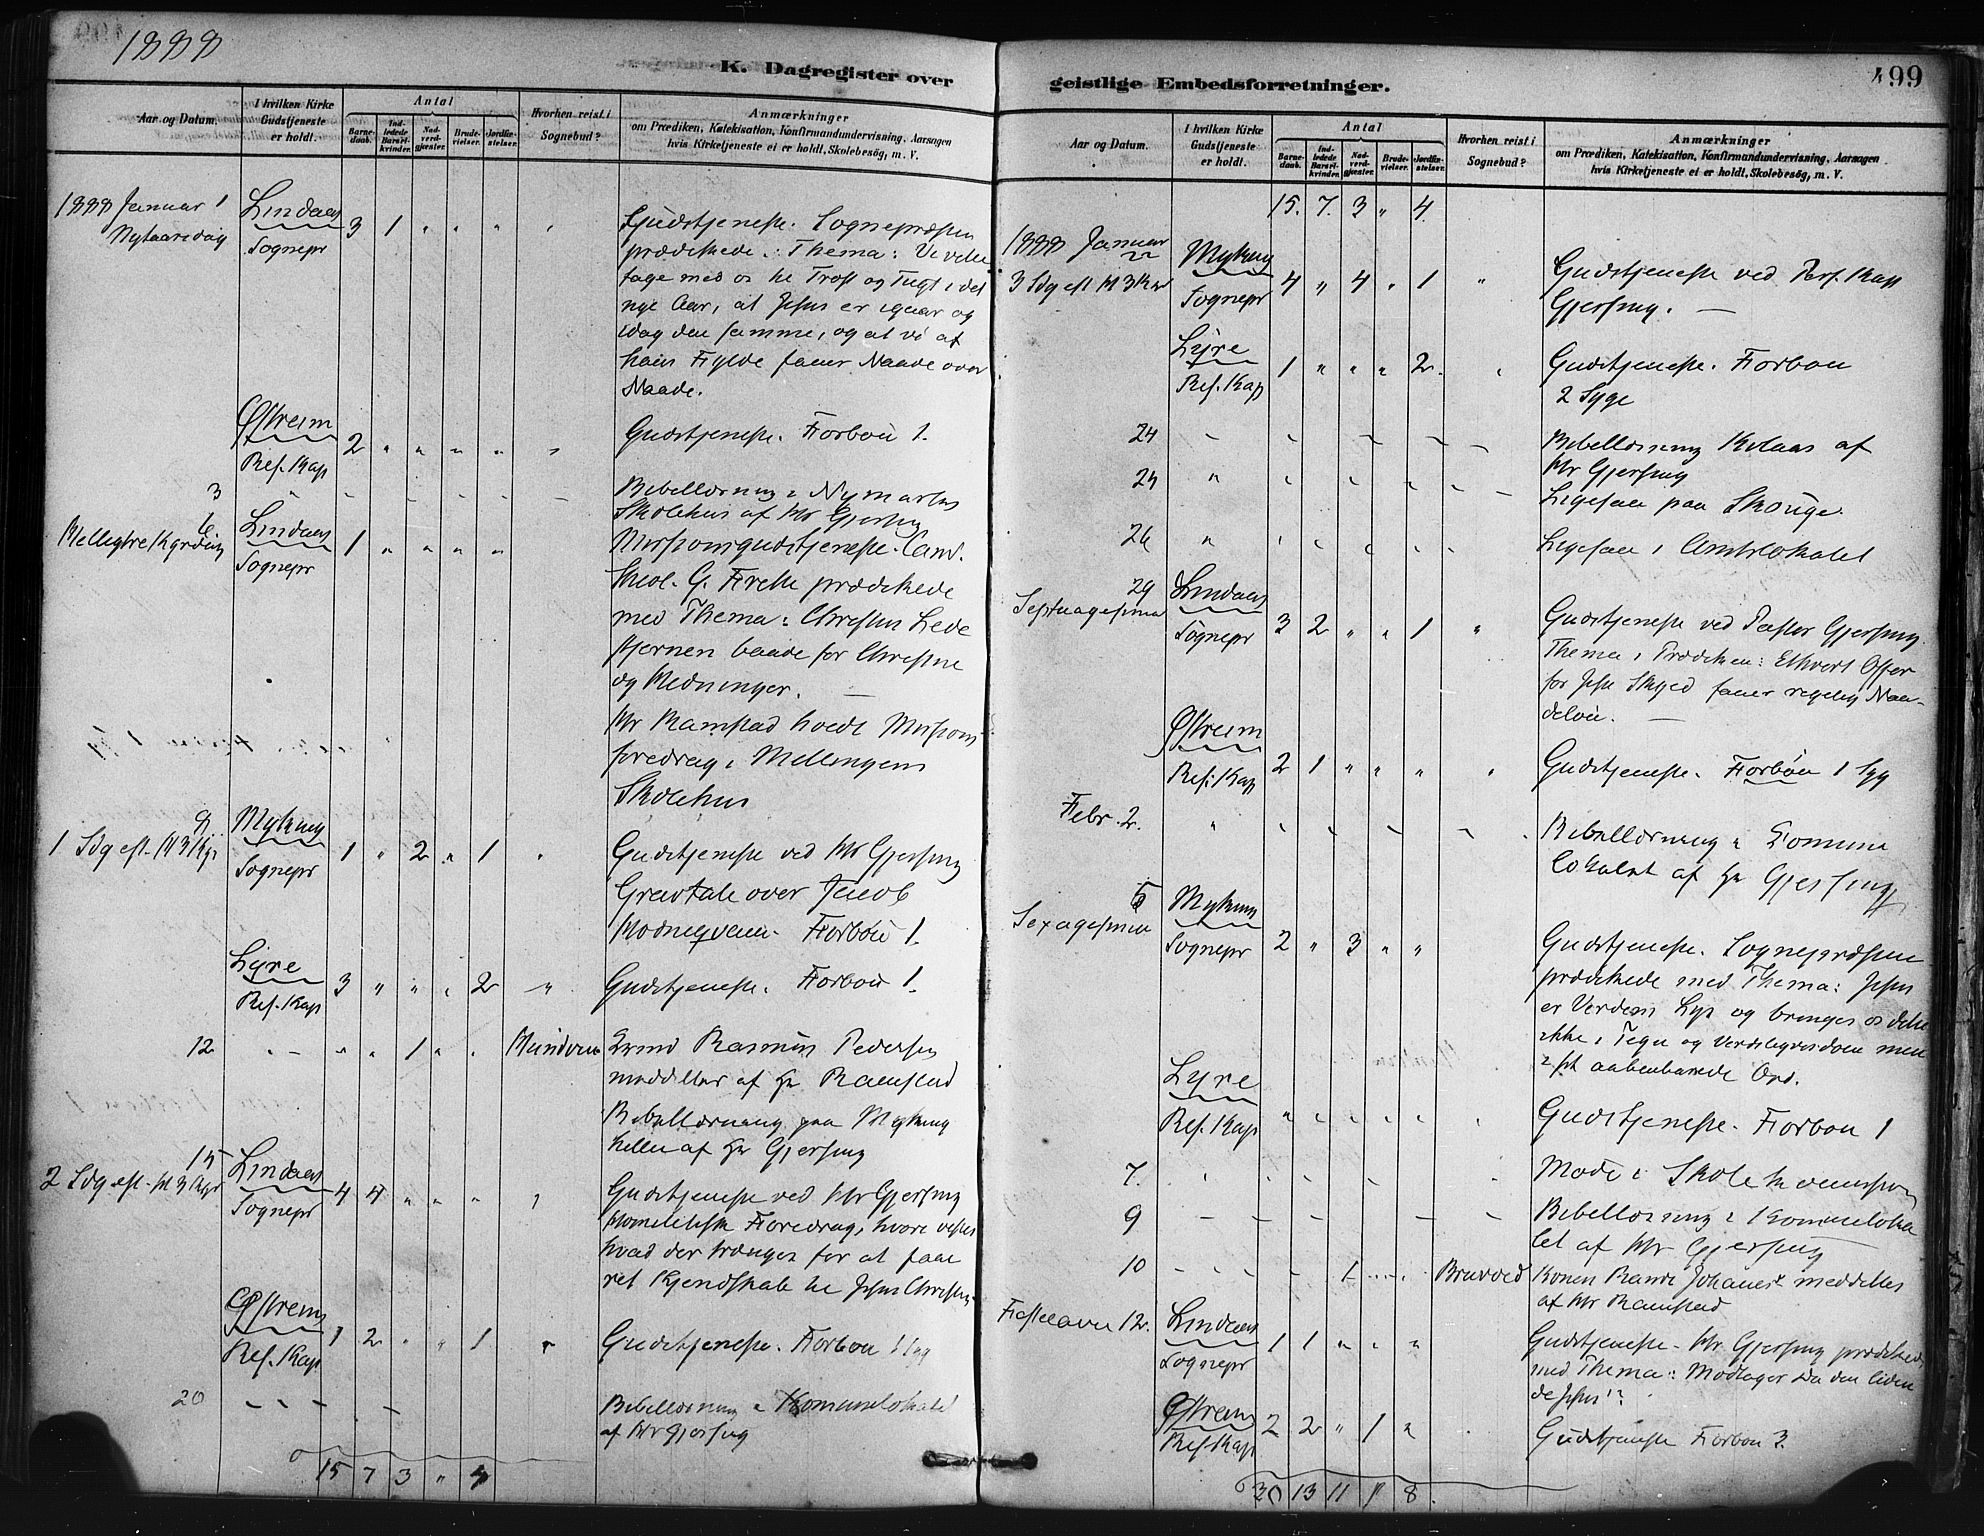 1888
K. Dagregister over
Aar og Datum.
I hvilken Kirke Gudstjeneste er holdt.
Antal
Barnedaab.
Indledede Barselkvinder.
Nadverdgjæster.
Brudevielser.
Jordfæstelser.
Hvorhen reist i Sognebud?
Anmærkninger
om Prædiken, Katekisation, Konfirmandundervisning, Aarsagen
hvis Kirketjeneste ei er holdt, Skolebesøg, m. V.
1888 Januar 1
Nytaarsdag
Lindaas
Sognepr
3 1 " " " "
Gudstjeneste. Sognepræsten
prædikede. Thema: Vi ville
tage med os til Trøst og Tugt i det
nye Aar, at Jesus er igaar og
idag den samme, og at vi af
hans Fylde faaer Naade over
Naade.
Østreim
Res. Kap
2 " " " " "
Gudstjeneste. Forbøn 1.
3
Bibellæsning i Nymarks
Skolehus af Hr Gjersing
6
Lindaas
Sognepr
1 " " " "
Missionsgudstjeneste. Cand.
theol. G. prædikede
med Thema: Christus Lede
stjernen baade for Christne
og Hedninger.
Hr Ramstad holdt Missions
foredrag i Mellingens
Skolehus
8
1 Sdg eft. H 3 Kgr
Myking
Sognepr
1 " 2 " 1 "
Gudstjeneste ved Hr Gjersing
Gravtale over Jacob
Forbøn 1.
Lyre
Res. Kap
3 " " " 2 "
Gudstjeneste. Forbøn 1.
12
" - " " 1 " "
Rasmus Pedersen
meddeltes af Hr Ramstad
Bibellæsning paa Myking
af Hr Gjersing
15
2 Sdg eft. H 3 Kgr
Lindaas
Sognepr
4 4 " " " "
Gudstjeneste ved Hr Gjersing
Homiletisk Foredrag, hvori vistes
hvad der trænges for at faae
ret Kjendskab til Jesus Christus.
Østreim
Res. Kap
1 2 " " 1 "
Gudstjeneste. Forbøn 1 Syg
20
Bibellæsning i Kommunelokalet
af Hr Gjersing
15 7 3 " 4
geistlige Embedsforretninger.
499
Aar og Datum.
I hvilken Kirke Gudstjeneste er holdt.
Antal
Barnedaab.
Indledede Barselkvinder.
Nadverdgjæster.
Brudevielser.
Jordfæstelser.
Hvorhen reist i Sognebud?
Anmærkninger
om Prædiken, Katekisation, Konfirmandundervisning, Aarsagen
hvis Kirketjeneste ei er holdt, Skolebesøg, m. V.
15. 7. 3 " 4.
1888 Januar
22
3 Sdg eft H 3 Kgr
Myking
Sognepr
4 " 4 " 1 "
Gudstjeneste ved Pers. Kap
Gjersing.
Lyre
Res. Kap
1 " " " 2. "
Gudstjeneste. Forbøn
2 Syge
24
Bibellæsning af
Hr Gjersing
Ligesaa paa Skouge.
26
Ligesaa i Amtslokalet
29
Septuagesima
Lindaas
Sognepr
3 2 " " 1 "
Gudstjeneste ved Pastor Gjersing
Thema i Prædiken: Ethvert Offer
for Jesu Skyld faaer rigelig Naa-
deløn.
Østreim
Res. Kap
2 1 " " " "
Gudstjeneste. Forbøn 1 Syg
Febr. 2.
Bibellæsning i Commune
lokalet af Hr Gjersing
5
Sexagesima
Myking
Sognepr
2 " 3 " "
Gudstjeneste. Sognepræsten
prædikede med Thema: Jesus
er Verdens Lys og bringer os dette
ikke i Tegn og Verdslig men
i sit aabenbarede Ord.
Lyre
Res. Kap
Gudstjeneste. Forbøn 1
7.
Møde i Skolekommission
9
Bibellæsning i Kommuneloka
let af Hr Gjersing
10
1
Bruvold
Konen Johanesd. meddeltes
af Hr Ramstad
Fastelavn 12.
Lindaas
Sognepr
1 1 " " "
Gudstjeneste. Hr Gjersing prædikede
med Thema: Modtager Du den liden
de Jesus?
Østreim
Res Kap
2 2 " 1 "
Gudstjeneste Forbøn 3.
20 13 11 1 8.